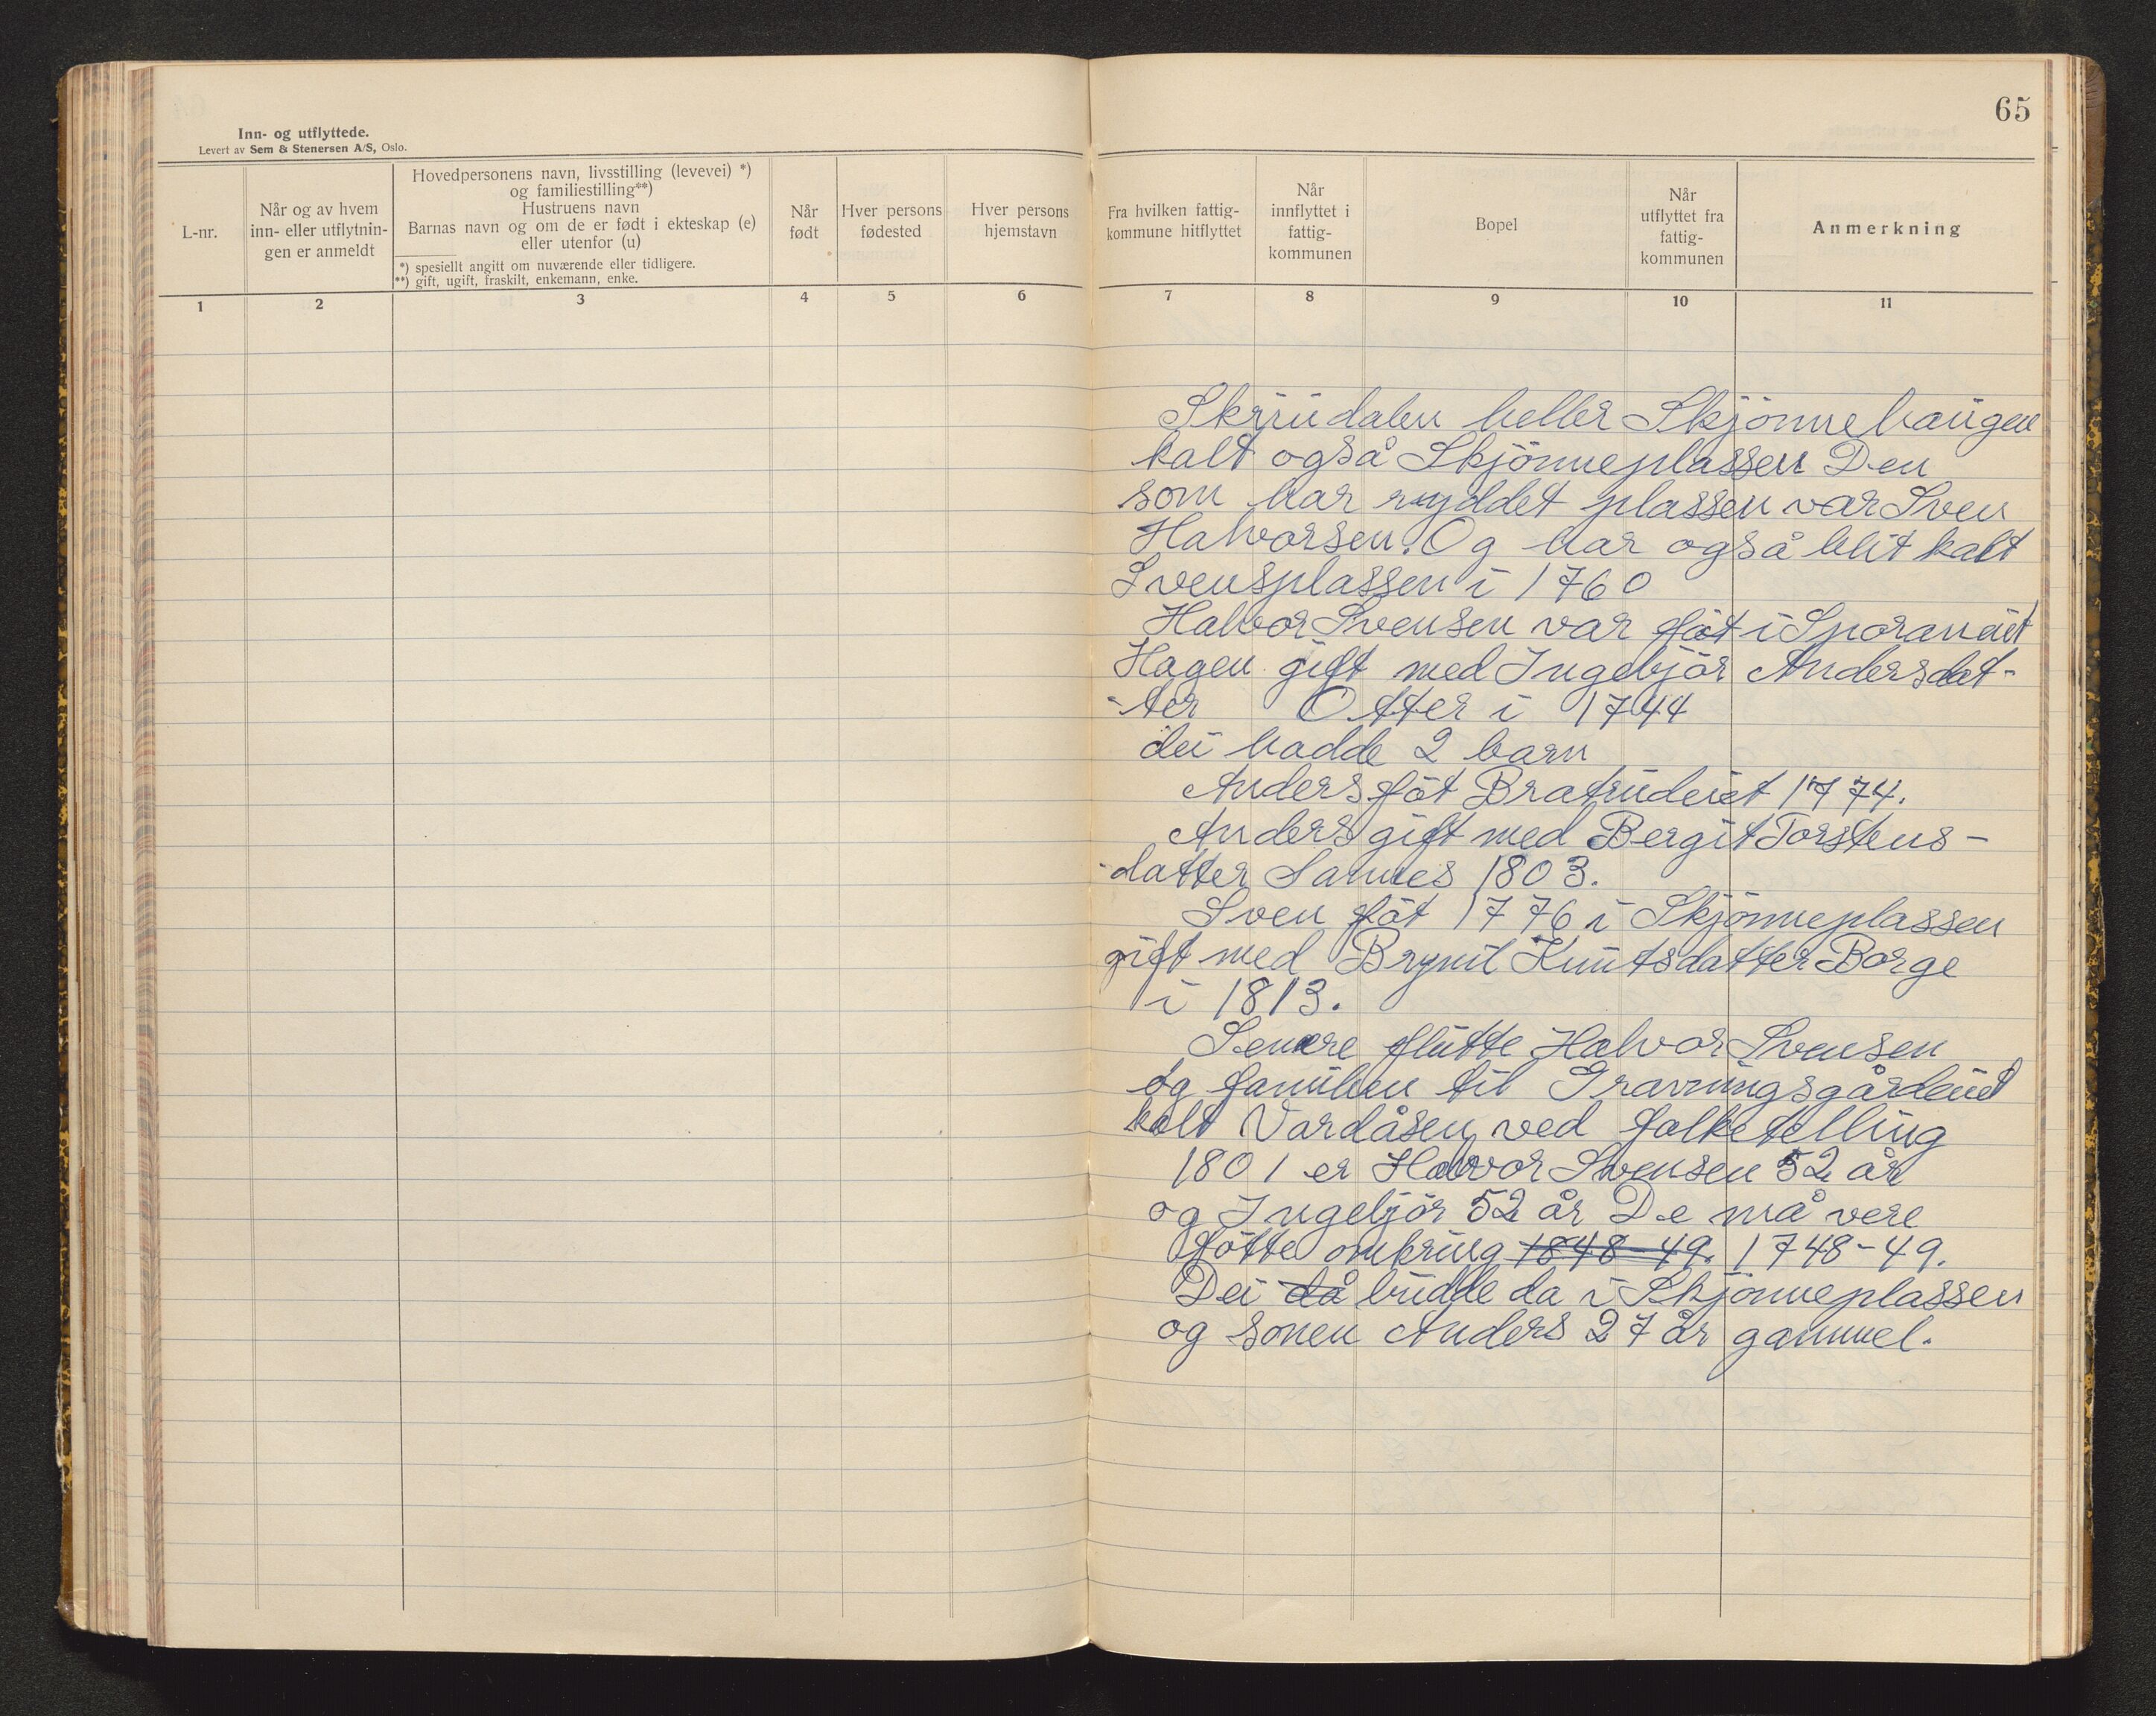 65
Inn- og utflyttede.
Levert av Sem & Stenersen A/S, Oslo.
L-nr.
Når og av hvem
inn- eller utflytnin-
gen er anmeldt
Hovedpersonens navn, livsstilling (levevei) *)
og familiestilling**)
Hustruens navn
Barnas navn og om de er født i ekteskap (e)
eller utenfor (u)
*) spesiellt angitt om nuværende eller tidligere.
**) gift, ugift, fraskilt, enkemann, enke.
Når
født
Hver persons
fødested
Hver persons
hjemstavn
Fra hvilken fattig-
kommune hitflyttet
Når
innflyttet i
fattig-
kommunen
Bopel
Når
utflyttet fra
fattig-
kommunen
Anmerkning
1 2 3 4 5 6 7 8 9 10 11
Skjrudalen heller Skjönnehaugen
kalt også Skjönneplassen Den
som har ryddet plassen var Sven
Halvorsen. Og har også blit kalt
Svensplassen i 1760
Halvor Svensen var föt i
Hagen gift med Ingebjör Andersdat-
-ter Otter i 1744
dei hadde 2 barn
Anders föt Bratrudeiet 1774.
Anders gift med Bergit Torstens-
-datter Sannes 1803.
Sven föt 1776 i Skjönneplassen
gift med Brynil Knutsdatter Borge
i 1813.
Senere flutte Halvor Svensen
og familien til Gravningsgårdeiet
kalt Vardåsen ved folketelling
1801 er Halvor Svensen 52 år
og Ingebjör 52 år De må vere
fötte omkring 1848-49. 1748-49.
Dei då budde da i Skjönneplassen
og sonen Anders 27 år gammel.